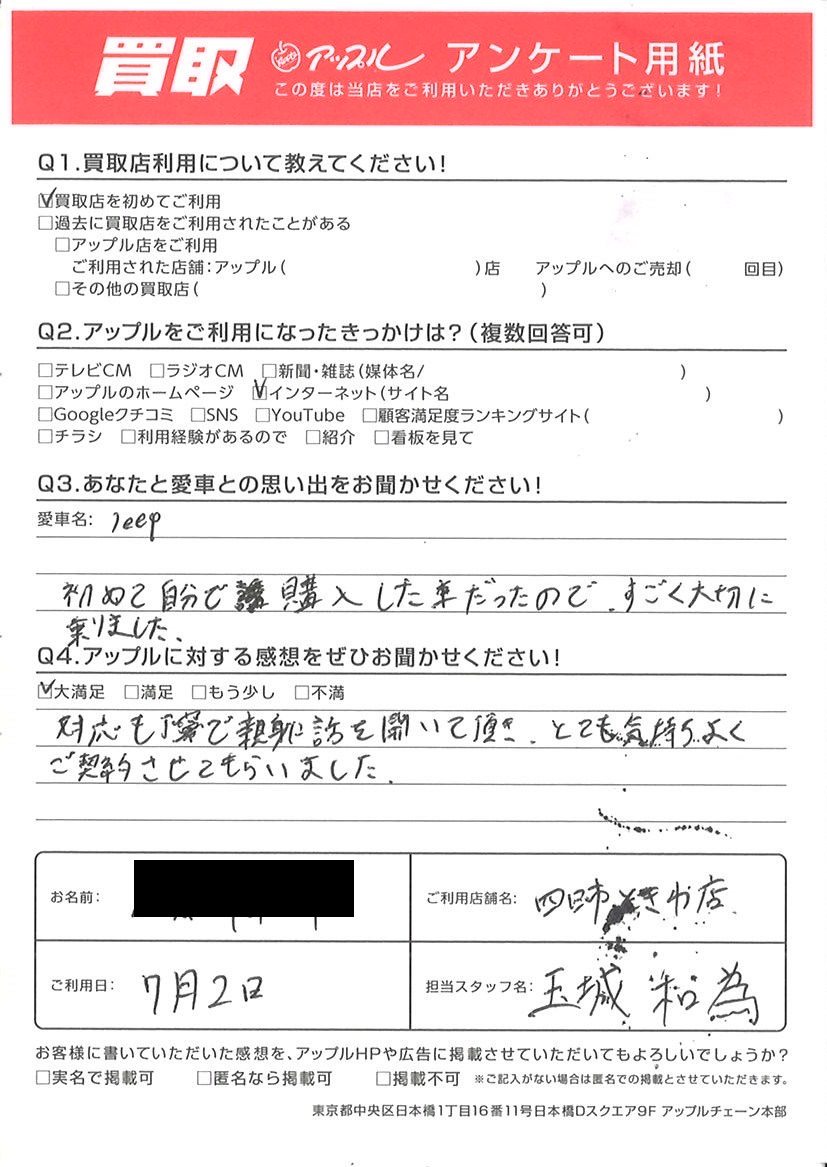 買取 アップル アンケート用紙
この度は当店をご利用いただきありがとうございます!
Q1.買取店利用について教えてください!
☑買取店を初めてご利用
□過去に買取店をご利用されたことがある
□アップル店をご利用
ご利用された店舗:アップル( )店 アップルへのご売却( 回目)
□その他の買取店( )
Q2.アップルをご利用になったきっかけは?(複数回答可)
□テレビCM □ラジオCM □新聞・雑誌(媒体名/ )
□アップルのホームページ ☑インターネット(サイト名 )
□Googleクチコミ □SNS □YouTube □顧客満足度ランキングサイト( )
□チラシ □利用経験があるので □紹介 □看板を見て
Q3.あなたと愛車との思い出をお聞かせください!
愛車名: Jeep
初めて自分で購入した車だったので、すごく大切に
乗りました。
Q4.アップルに対する感想をぜひお聞かせください!
☑大満足 □満足 □もう少し □不満
対応も丁寧で親身に話を聞いて頂き、とても気持ちよく
ご契約させてもらいました。
お名前: ご利用店舗名: 四日市ときわ店
ご利用日: 7月2日 担当スタッフ名: 玉城 和為
お客様に書いていただいた感想を、アップルHPや広告に掲載させていただいてもよろしいでしょうか?
□実名で掲載可 □匿名なら掲載可 □掲載不可 ※ご記入がない場合は匿名での掲載とさせていただきます。
東京都中央区日本橋1丁目16番11号日本橋Dスクエア9F アップルチェーン本部